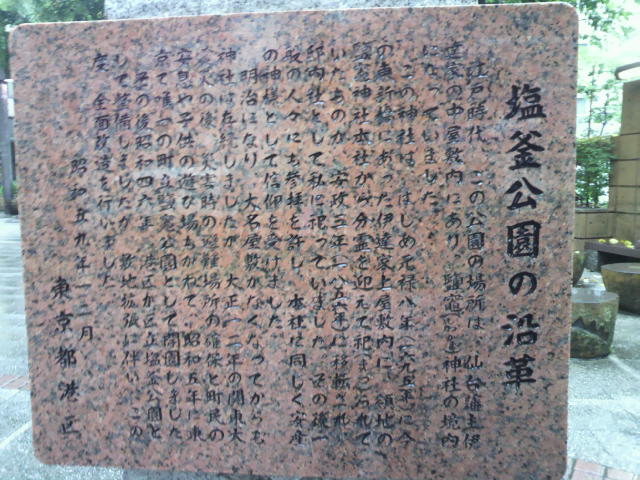 塩釜公園の沿革
江戸時代、この公園の場所は、仙台藩主伊
達家の中屋敷内にあり、鹽竈神社の境内
になっていました。
この神社は、はじめ元禄八年(一六九五年)に今
の東新橋にあった伊達家上屋敷内に、領地の
鹽竈神社本社から分霊を迎えて祀(まつ)られて
いたものが、安政三年(一八五六年)に移転され、
邸内社として私に祀っていました。その後一
般の人々にも参拝を許し、本社に同じく安産
の神様として信仰を受けました。
明治になり、大名屋敷がなくなってからも
神社は存続しましたが、大正一二年の関東大
震火の後、災害時の避難場所の確保と町民の
安息や子供の遊び場もかねて、昭和五年に東
京で唯一の町立鹽竈公園として開園しました。
その後昭和四六年、港区が区立塩釜公園と
して整備しましたが、敷地拡張に伴い、この
度、全面改造を行いました。
昭和五九年一二月
東京都港区